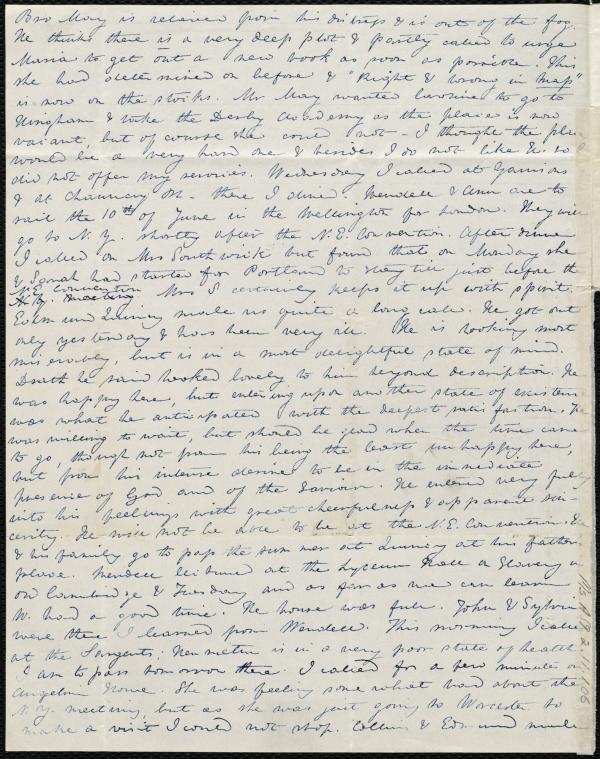 Bro May is relieved from his distress & is out of the fog.
He thinks there is a very deep plot & partly called to urge
Maria to get out a new book as soon as possible. This
she had determined on before & "Right & Wrong in Mass"
is now on the stocks. Mr May wanted Caroline to go to
Hingham & take the Derby Academy as the place is now
vacant, but of course she could not - I thought the place
would be a very hard one & besides I do not like H. so
did not offer my services. Wednesday I called at Garrisons
& at Chauncy St. - there I dined. Wendell & Ann are to
sail the 10th of June in the Wellington for London. They will
go to N.Y. shortly after the N.E. Convention. After dinner
I called on Mrs Southwick but found that on Monday she
& Sarah had started for Portland to stay till just before the
N.E. Convention
N.Y. meeting Mrs S certainly keeps it up with spirit.
Edmund Quincy made us quite a long call. He got out
only yesterday & has been very ill. He is looking most
miserably, but is in a most delightful state of mind.
Death he said looked lovely to him beyond description. He
was happy here, but entering upon another state of existence
was what he anticipated with the deepest satisfaction. He
was willing to wait, but should be glad when the time came
to go, though not from his being the least unhappy here,
but from his intense desire to be in the immediate
presence of God and of the Saviour. He entered very fully
into his feelings with great cheerfulness & apparent sin-
cerity. He will not be able to be at the N.E. Convention. He
& his family go to pass the summer at Quincy at his father's
place. Wendell lectured at the Lyceum Hall on Slavery in
old Cambridge & Tuesday and as far as we can learn
W. had a good time. The house was full. John & Sylvia
were there I learned from Wendell. This morning I called
at the Sargents; Henrietta is in a very poor state of health
I am to pass tomorrow there. I called for a few minutes on
Angelina Grimké. She was feeling somewhat bad about the
N.Y. meeting, but as she was just going to Worcester to
make a visit I could not stop. Collins & Edmund made
Ms.A.9.2.11.106